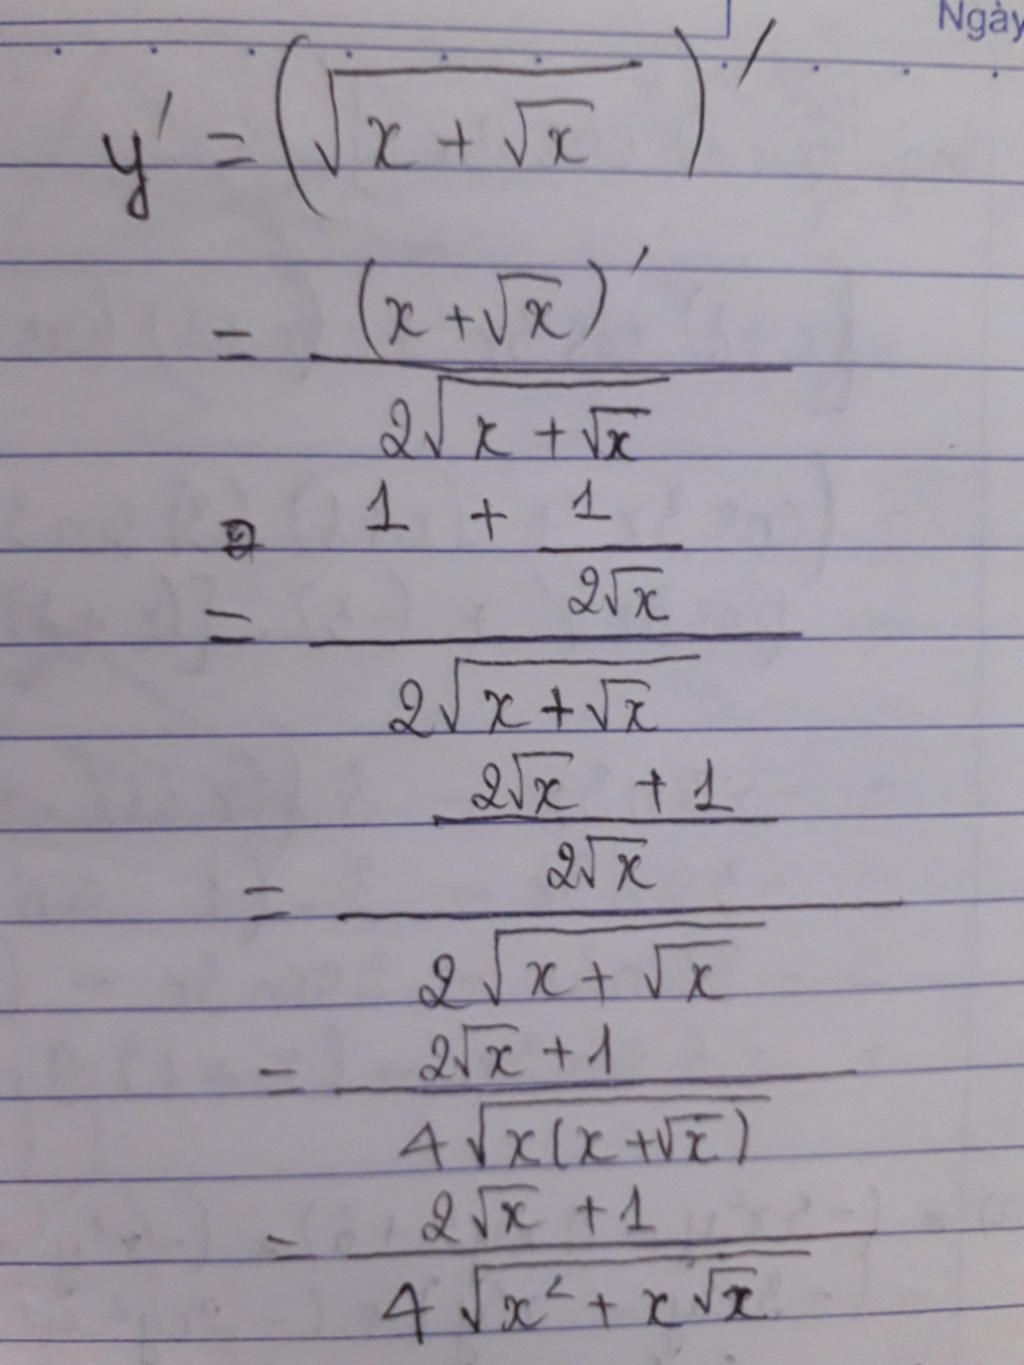 Ngày
y' = (√(x + √x))'
= (x + √x)' / (2√(x + √x))
= (1 + 1/(2√x)) / (2√(x + √x))
= ((2√x + 1)/(2√x)) / (2√(x + √x))
= (2√x + 1) / (4√(x(x + √x)))
= (2√x + 1) / (4√(x² + x√x))